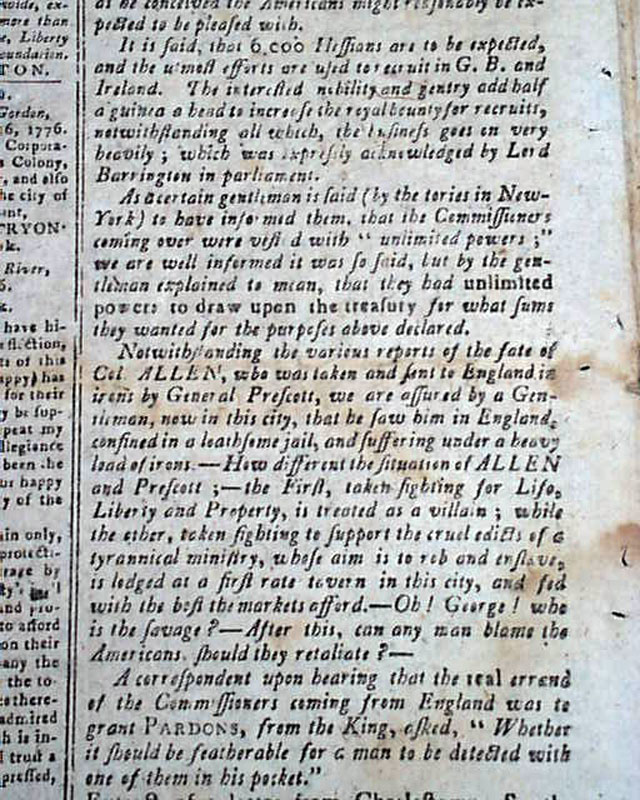 wide, ex-
more than
e, Liberty
oundation.
TON.
Gordon,
6, 1776.
Corpora-
Colony,
, and also
he city of
TRYON.
River,
have hi-
flection,
ts of this
appy) has
for their
y be sup-
peat my
llegiance
been the
us happy
y of the
ain only,
protecti-
rage by
and pro-
to afford
on their
any the
the to-
there-
admitred
h is in-
trust a
pressed,
as he conceived the Americans might reasonably be ex-
pected to be pleased with.
It is said, that 6,000 Hessians are to be expected,
and the utmost efforts are used to recruit in G. B. and
Ireland. The interested nobility and gentry add half
a guinea a head to increase the royal bounty for recruits,
notwithstanding all which, the business goes on very
heavily ; which was expressly acknowledged by Lord
Barrington in parliament.
As a certain gentleman is said (by the tories in New-
York) to have informed them, that the Commissioners
coming over were vested with " unlimited powers ;"
we are well informed it was so said, but by the gen-
tleman explained to mean, that they had unlimited
powers to draw upon the treasury for what sums
they wanted for the purposes above declared.
Notwithstanding the various reports of the fate of
Col ALLEN, who was taken and sent to England in
irons by General Prescott, we are assured by a Gen-
tleman, now in this city, that he saw him in England,
confined in a loathsome jail, and suffering under a heavy
load of irons.—How different the situation of ALLEN
and Prescott ;—the First, taken fighting for Life,
Liberty and Property, is treated as a villain ; while
the other, taken fighting to support the cruel edicts of a
tyrannical ministry, whose aim is to rob and enslave,
is lodged at a first rate tavern in this city, and fed
with the best the markets afford.—Oh! George! who
is the savage ?—After this, can any man blame the
Americans, should they retaliate ?—
A correspondent upon hearing that the real errand
of the Commissioners coming from England was to
grant PARDONS, from the King, asked, " Whether
it should be featherable for a man to be detected with
one of them in his pocket."
Extract of a letter from Charlestown, South